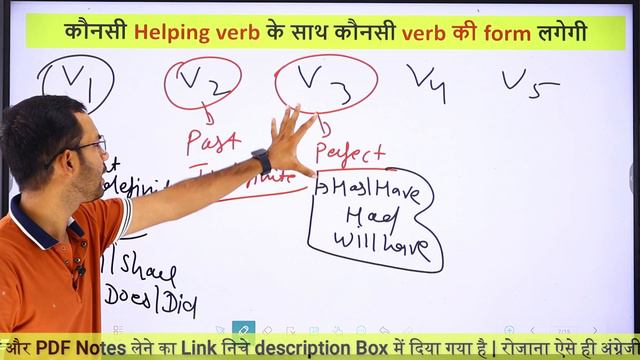 कौनसी Helping verb के साथ कौनसी verb की form लगेगी
V1 V2 V3 V4 V5
Past
Perfect
Has/Have
Had
Will have
Shall
Does/Did
और PDF Notes लेने का Link निचे description Box में दिया गया है | रोजाना ऐसे ही अंग्रेजी